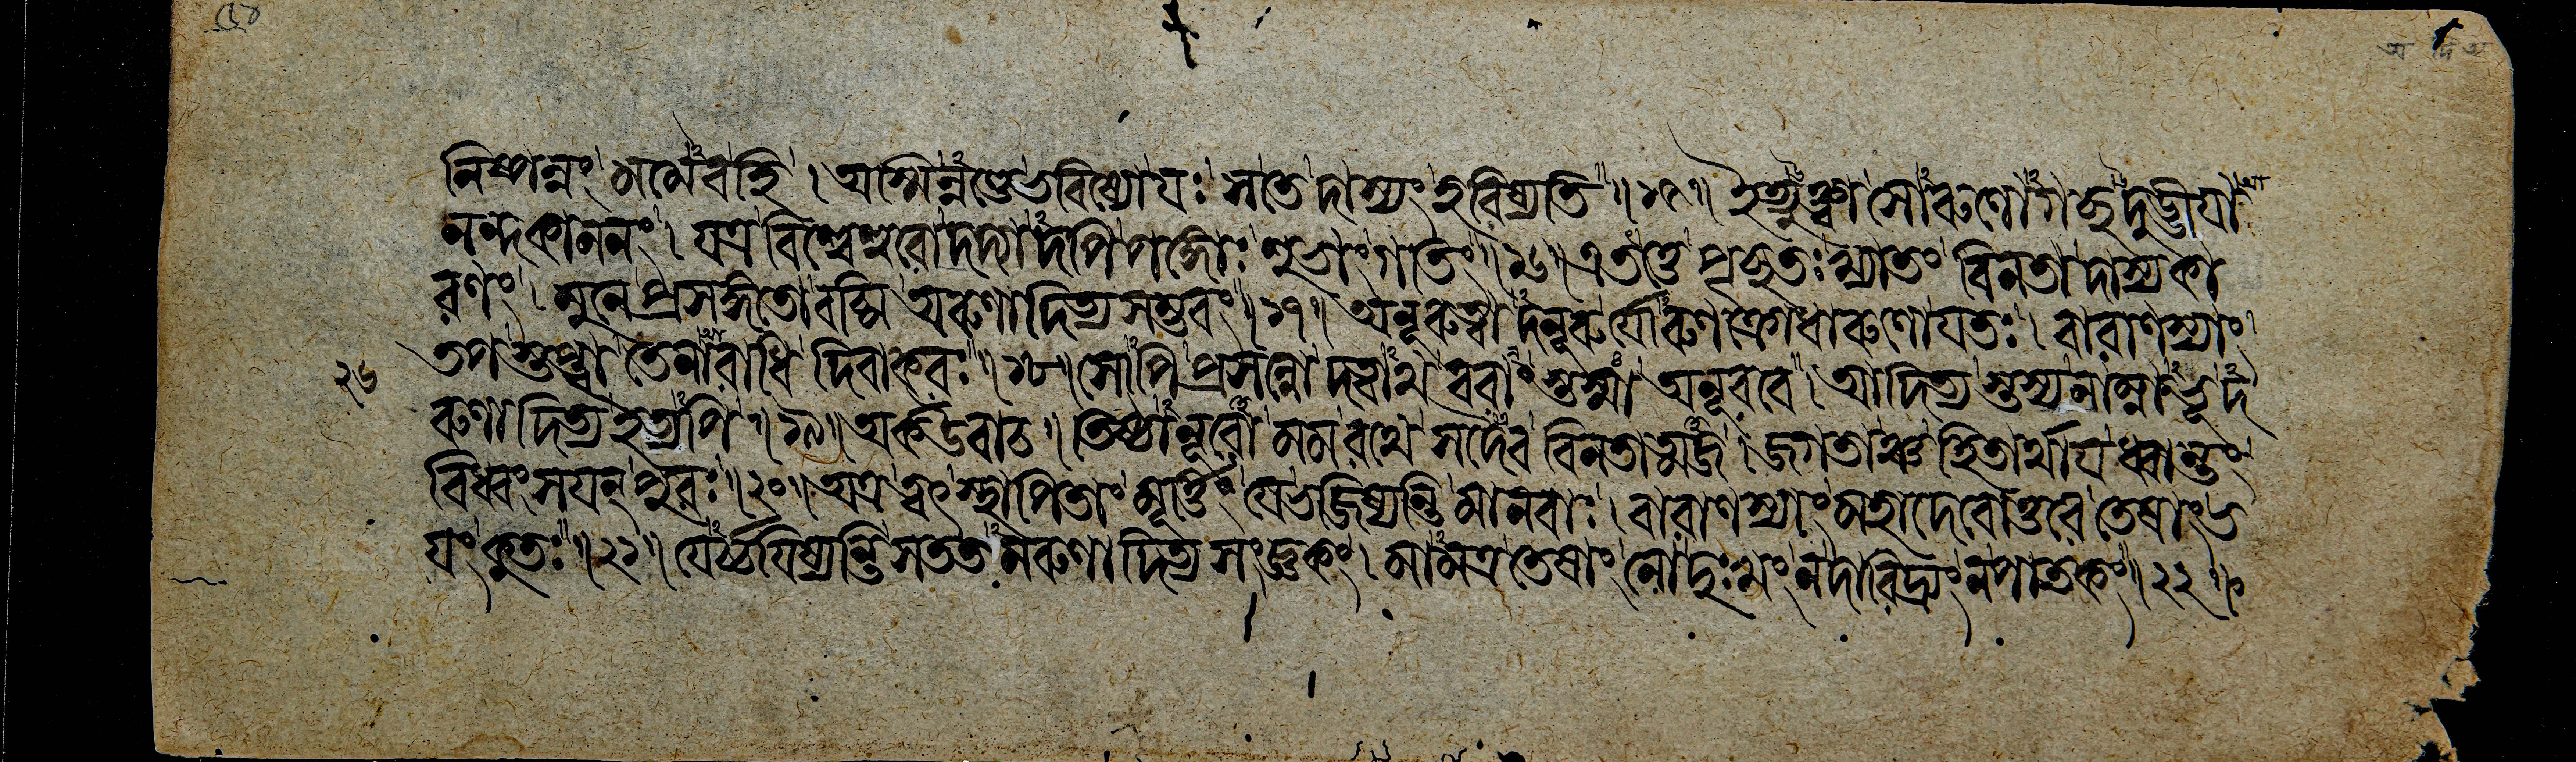 নিষ্পন্নং মমৈব হি । অস্মিন্নণ্ডে ভবিষ্যো যঃ স তে দাস্যং হরিষ্যতি ॥ ১৫ ॥ ইত্যুক্ত্বা সোরুণোগচ্ছদুড্ডীযা
নন্দকাননং । যত্র বিশ্বেশ্বরো দদ্যাদপি পঙ্গোঃ শুভাং গতিং ॥ ১৬ ॥ এতত্তে পৃচ্ছতঃ খ্যাতং বিনতাদাস্যকা
রণং । মুনে প্রসঙ্গতো বচ্মি অরুণাদিত্যসম্ভবং ॥ ১৭ ॥ অনূরুত্বাদনূরুর্যোরুণঃ ক্রোধারুণো যতঃ । বারাণস্যাং
২৬ তপস্তপ্ত্বা তেনারাধি দিবাকরঃ ॥ ১৮ ॥ সোপি প্রসন্নো দত্বাথ বরাংস্তস্মা অনূরবে । আদিত্যস্তস্য নাম্নাভূদ
রুণাদিত্য ইত্যপি ॥ ১৯ ॥ অর্ক উবাচ ॥ তিষ্ঠানূরো মম রথে সদৈব বিনতাত্মজ । জগতাঞ্চ হিতার্থায ধ্বান্তং
বিধ্বংসযন্ পুরঃ ॥ ২০ ॥ অত্র ত্বৎস্থাপিতাং মূর্ত্তিং যে ভজিষ্যন্তি মানবাঃ । বারাণস্যাং মহাদেবোত্তরে তেষাং ভ
যং কুতঃ ॥ ২১ ॥ যের্চ্চযিষ্যন্তি সততমরুণাদিত্যসংজ্ঞকং । মামত্র তেষাং নো দুঃখং ন দারিদ্র্যং ন পাতকং ॥ ২২ ॥